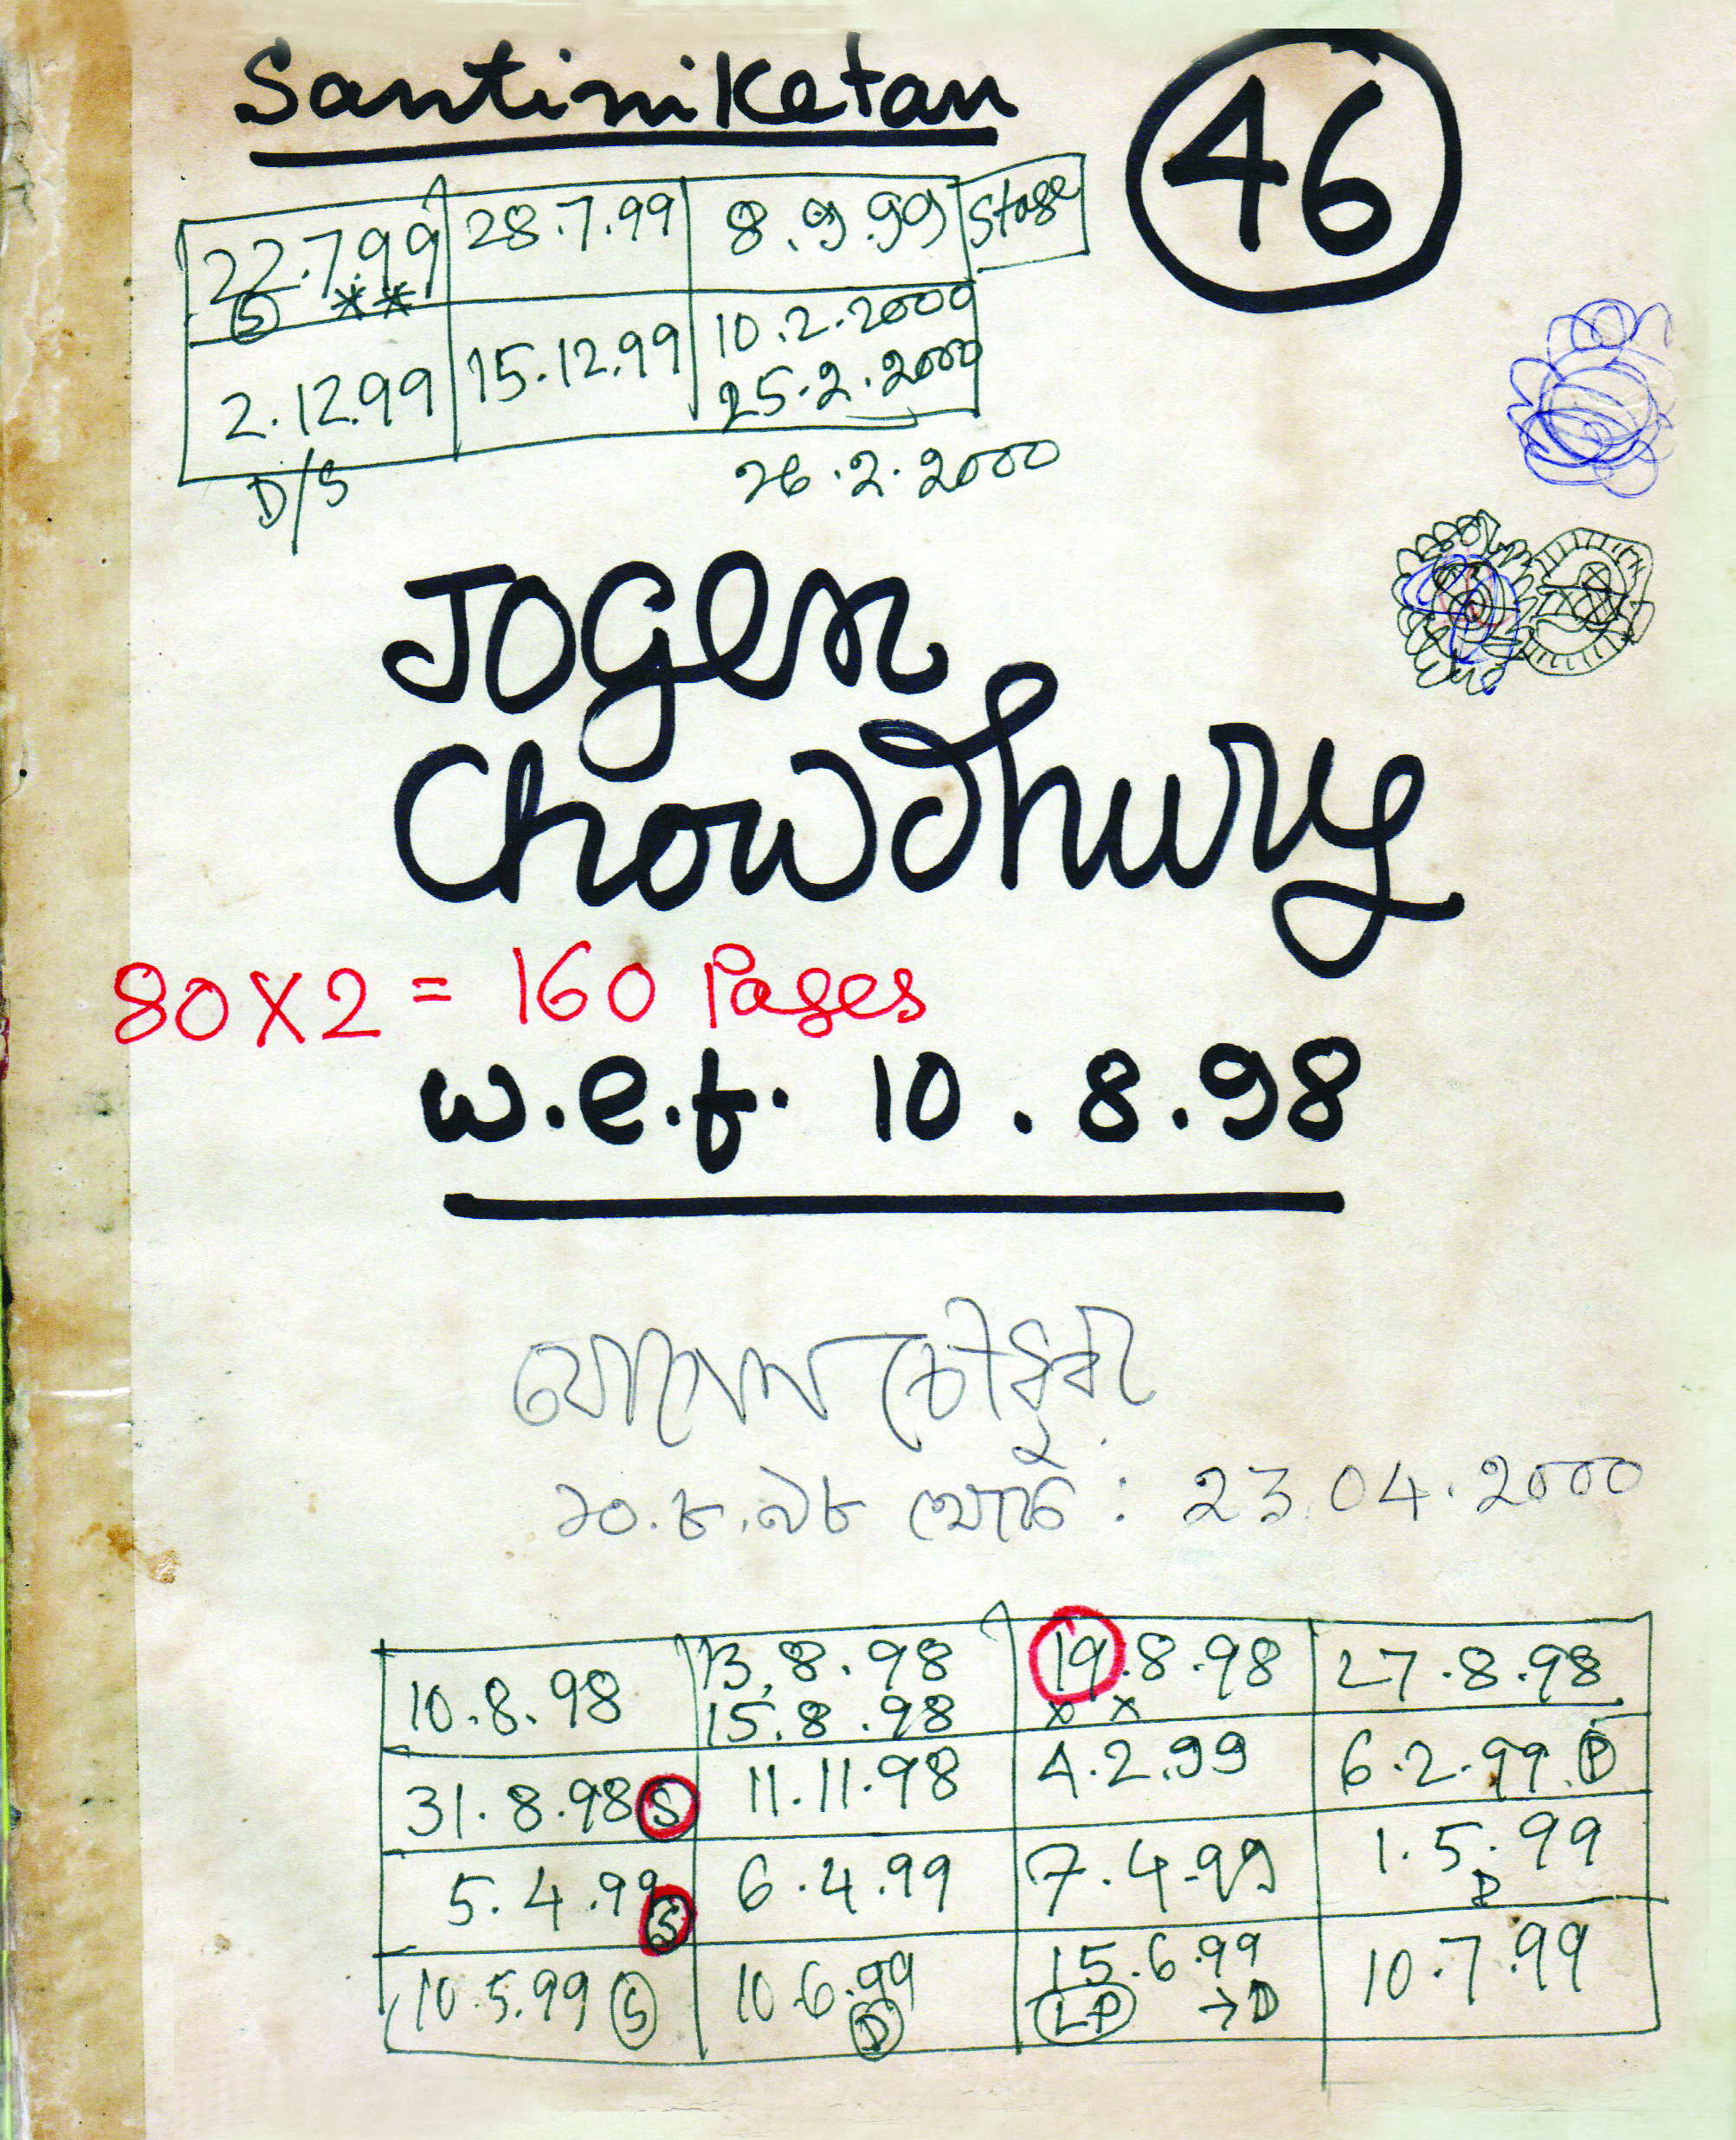 Santiniketan
46
22.7.99 28.7.99 8.9.99 Stage
S **
2.12.99 15.12.99 10.2.2000
25.2.2000
D/S 26.2.2000
Jogen
Chowdhury
80X2 = 160 Pages
w.e.f. 10.8.98
যোগেন চৌধুরী
১০.৮.৯৮ থেকে : 23.04.2000
10.8.98 13.8.98 19.8.98 27.8.98
15.8.98 x x
31.8.98 S 11.11.98 4.2.99 6.2.99.D
5.4.99 S 6.4.99 7.4.99 1.5.99
D
10.5.99 S 10.6.99 15.6.99 10.7.99
D LP →D